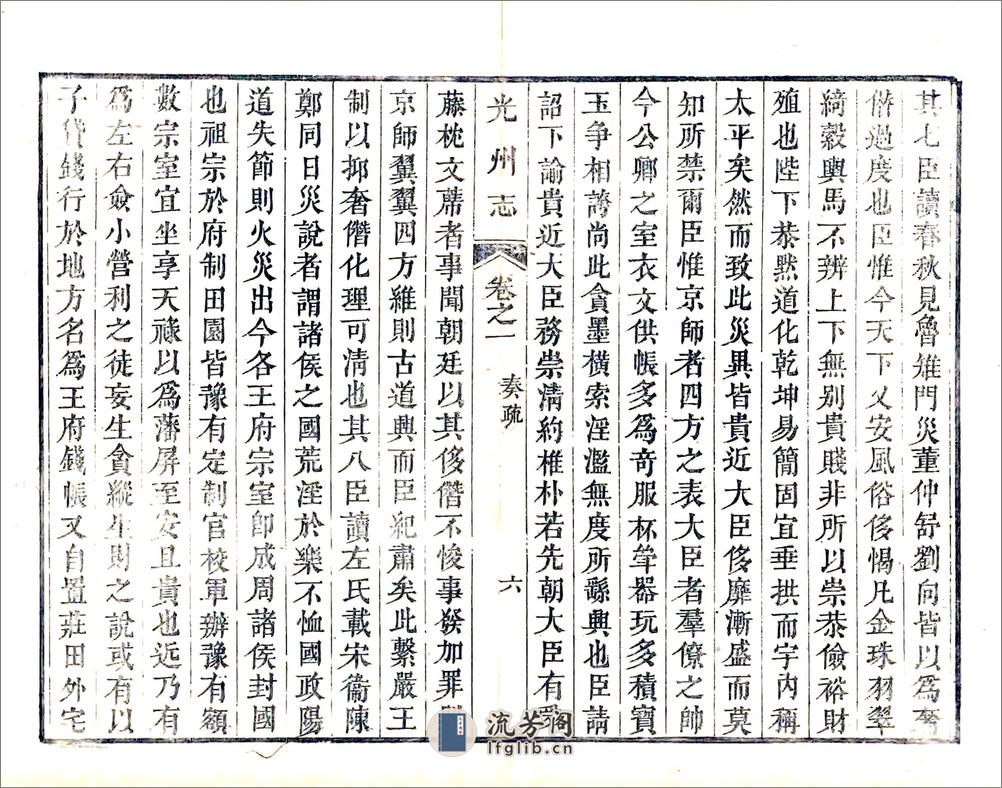 其七臣讀春秋見魯雉門災董仲舒劉向皆以為奢
僭過度也臣惟今天下乂安風俗侈愒凡金珠羽翠
綺縠輿馬不辨上下無別貴賤非所以崇恭儉裕財
殖也陛下恭默道化乾坤易簡固宜垂拱而宇內稱
太平矣然而致此災異皆貴近大臣侈靡漸盛而莫
知所禁爾臣惟京師者四方之表大臣者羣僚之帥
今公卿之室衣文供帳多為奇服杯斝器玩多積寶
玉爭相誇尚此貪墨橫索淫濫無度所繇興也臣請
詔下諭貴近大臣務崇清約椎朴若先朝大臣有
光州志
卷之一
奏疏
六
藤枕文蓆者事聞朝廷以其侈僭不悛事發加罪
京師翼翼四方維則古道興而臣紀肅矣此繫嚴王
制以抑奢僭化理可清也其八臣讀左氏載宋衞陳
鄭同日災說者謂諸侯之國荒淫於樂不恤國政陽
道失節則火災出今各王府宗室即成周諸侯封國
也祖宗於府制田園皆豫有定制官校軍辦豫有額
數宗室宜坐享天祿以為藩屏至安且貴也近乃有
為左右僉小營利之徒妄生貪縱生財之說或有以
子貸錢行於地方名為王府錢帳又自置莊田外宅
流芳閣
lfglib.cn